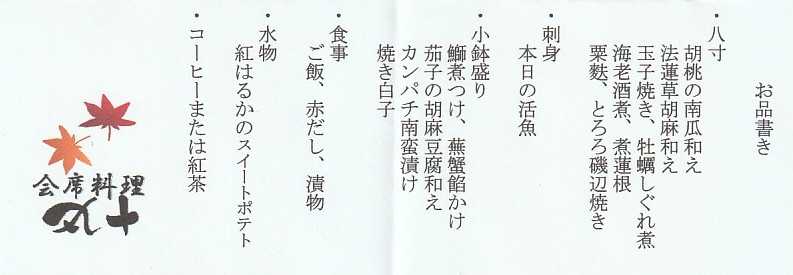 お品書き
・八寸
胡桃の南瓜和え
法蓮草胡麻和え
玉子焼き、牡蠣しぐれ煮
海老酒煮、煮蓮根
栗麩、とろろ磯辺焼き
・刺身
本日の活魚
・小鉢盛り
鰤煮つけ、蕪蟹餡かけ
茄子の胡麻豆腐和え
カンパチ南蛮漬け
焼き白子
・食事
ご飯、赤だし、漬物
・水物
紅はるかのスイートポテト
・コーヒーまたは紅茶
会席料理